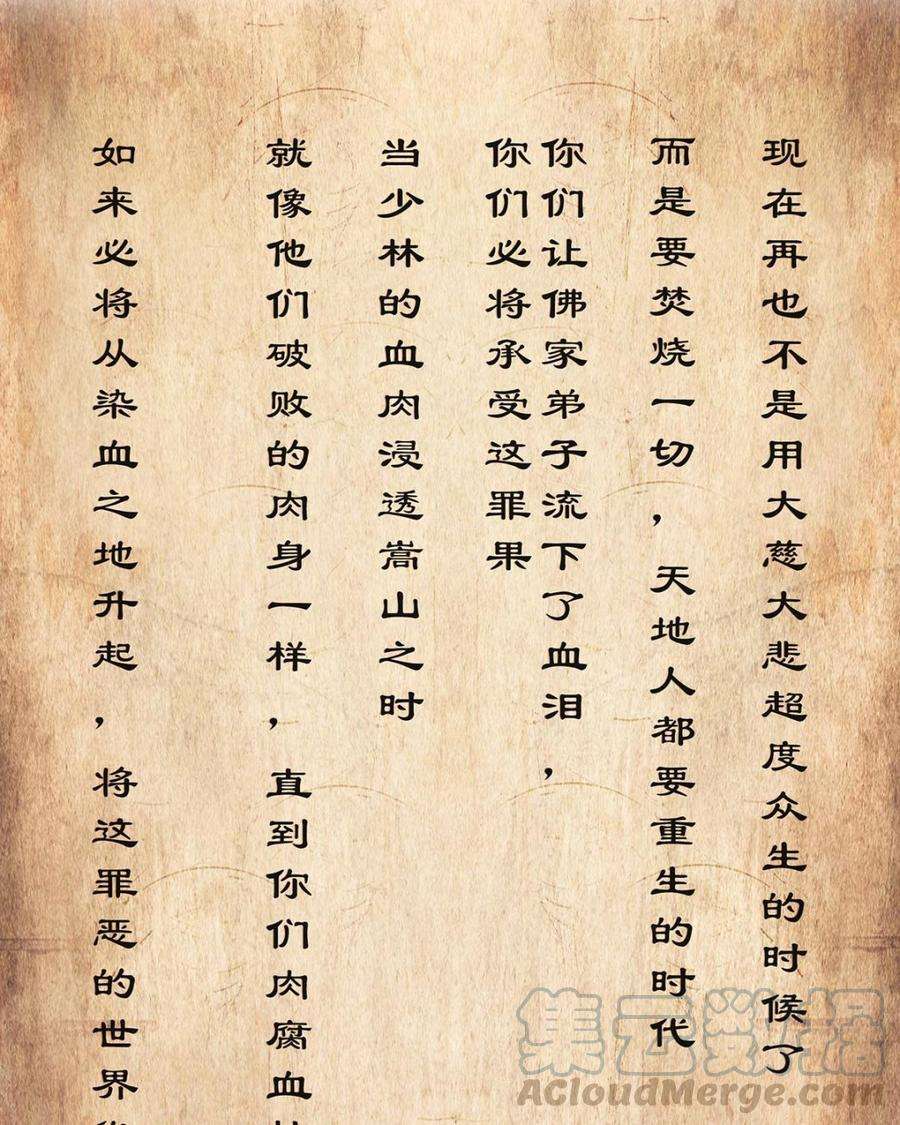 现在再也不是用大慈大悲超度众生的时候了
而是要焚烧一切，天地人都要重生的时代
你们让佛家弟子流下了血泪，
你们必将承受这罪果
当少林的血肉浸透嵩山之时
就像他们破败的肉身一样，直到你们肉腐血
如来必将从染血之地升起，将这罪恶的世界
集云数据
ACloudMerge.com